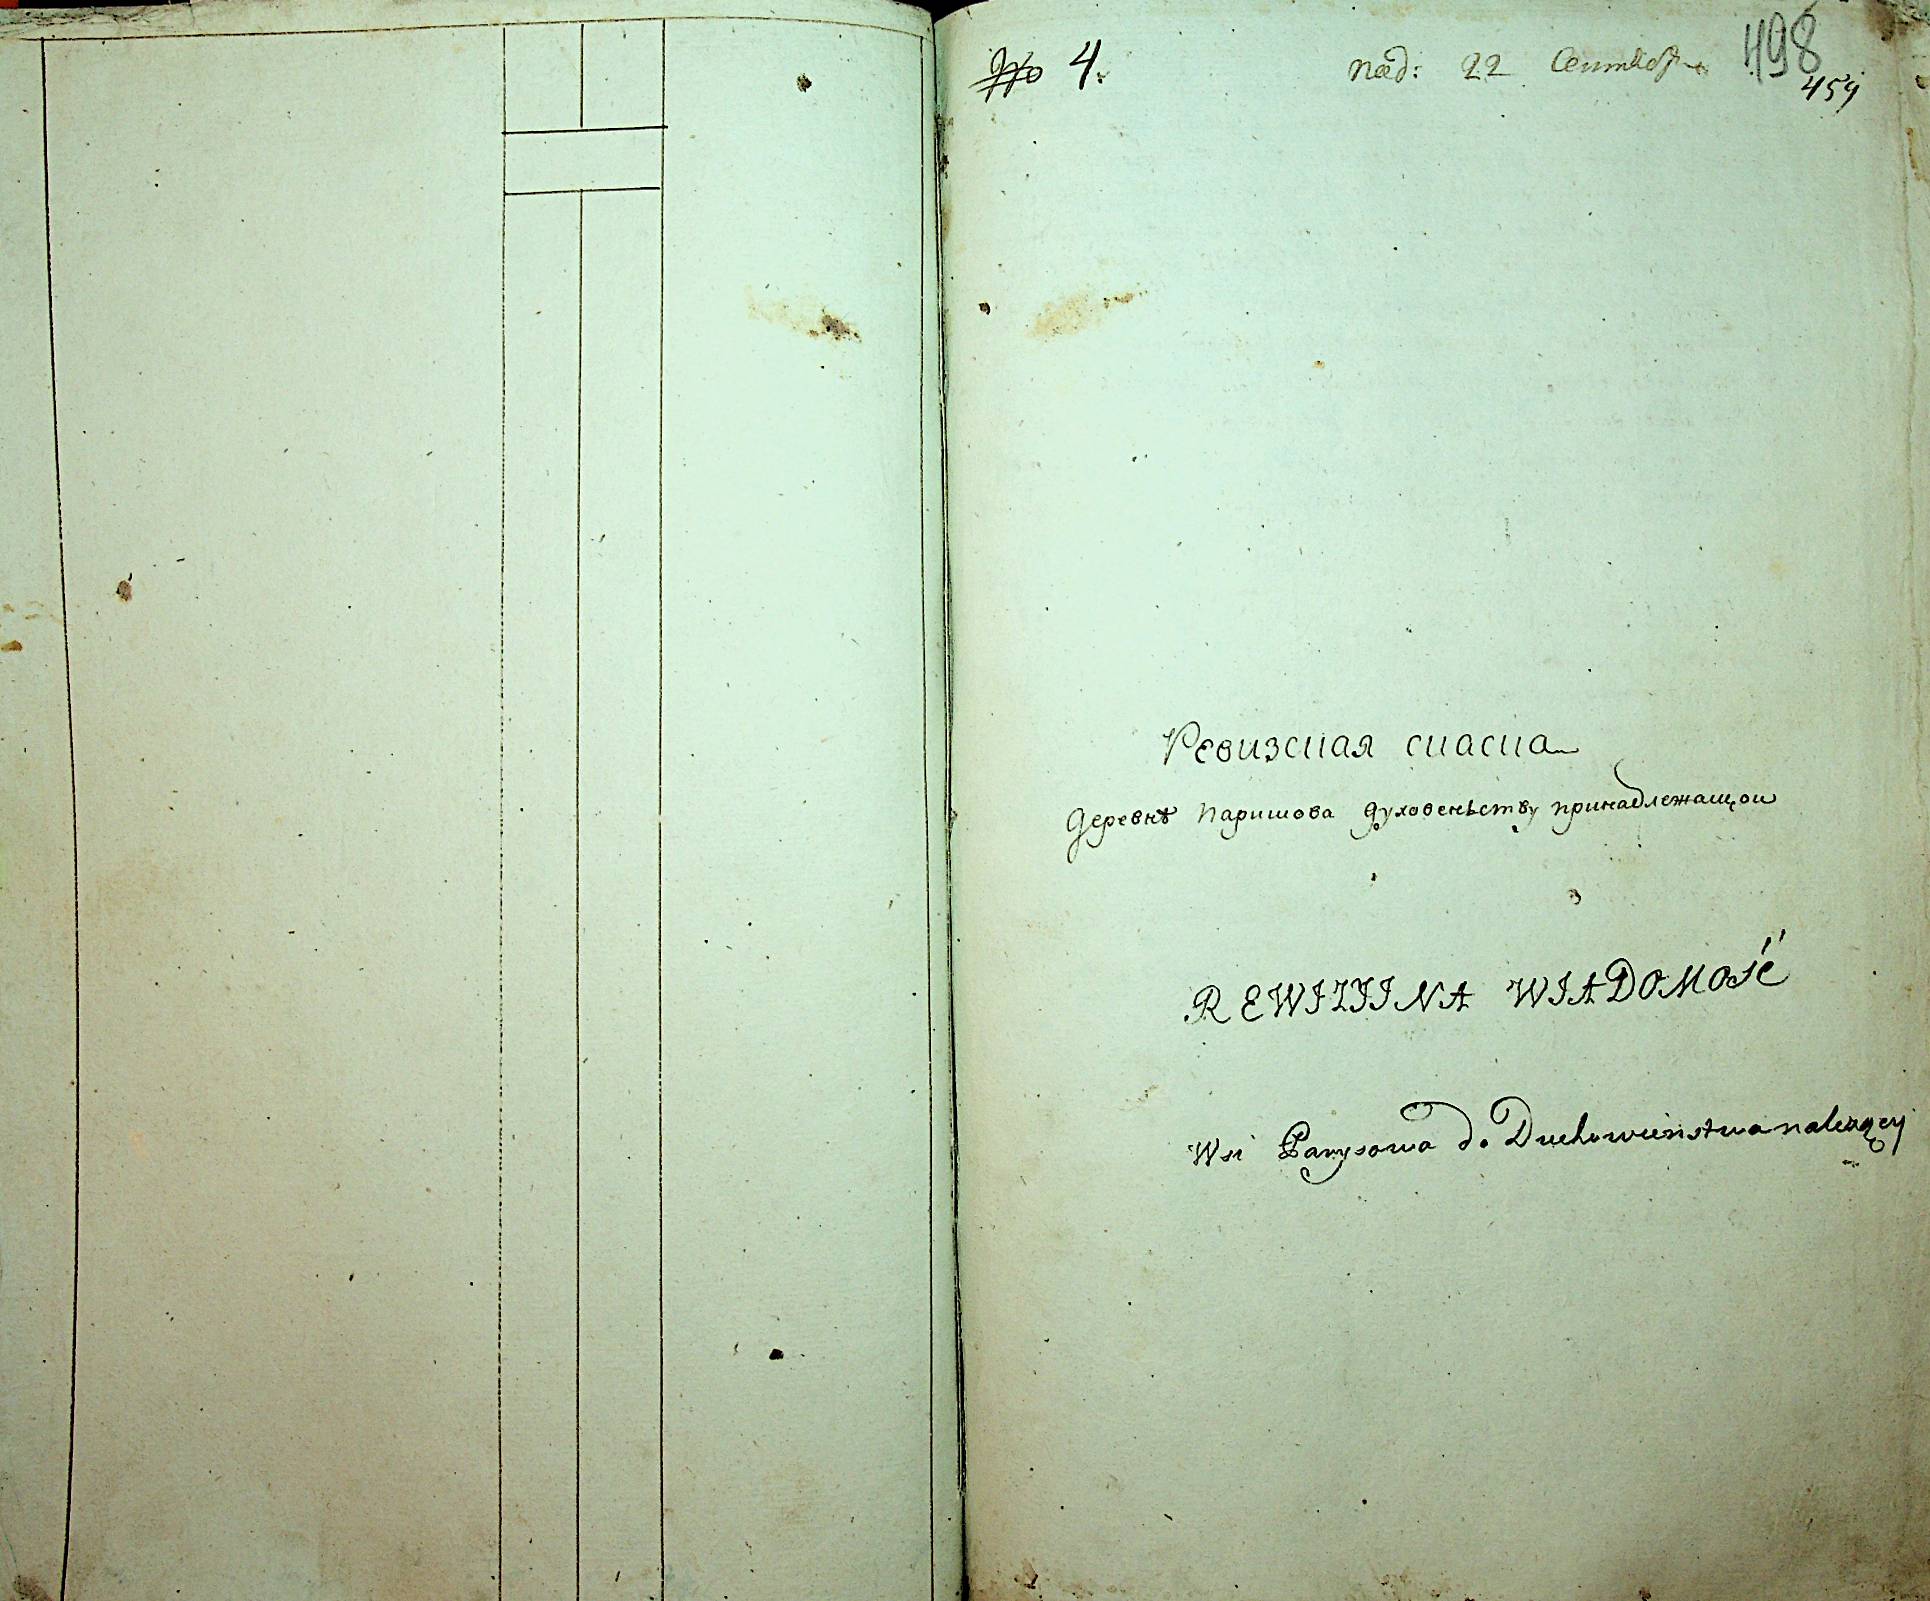 № 4.
под: 22 Сентября
498
454
Ревизская скаска
деревне Паришова духовеньству принадлежащои
REWIZIINA WIADOMOŚĆ
Wsi Parysowa do Duchowieństwa należącey